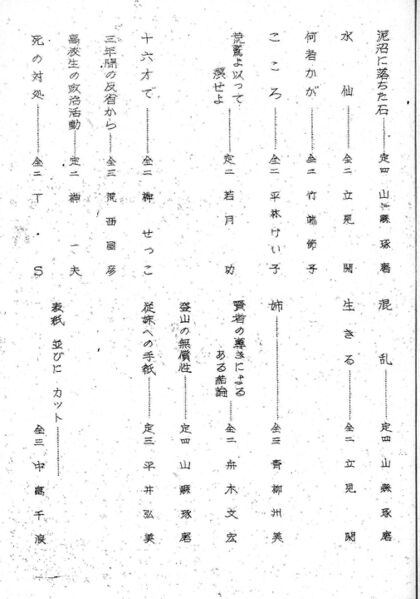 泥沼に落ちた石 定四 山縣琢磨
水仙 全二 立見関
何者かが 全二 竹端節子
こころ 全二 平林けい子
荒鷲よ以って
瞑せよ 定二 若月功
十六才で 全二 柳せっこ
三年間の反省から 全三 荒西国彦
高校生の政治活動 定二 柳一夫
死の対処 全二 T・S
混乱 定四 山縣琢磨
生きる 全二 立見関
姉 全三 青柳州美
賢者の尊さによる
ある結論 全二 舟木文宏
登山の無償性 定四 山縣琢磨
従妹への手紙 定三 平井弘美
表紙 並びに カット
全三 中島千波